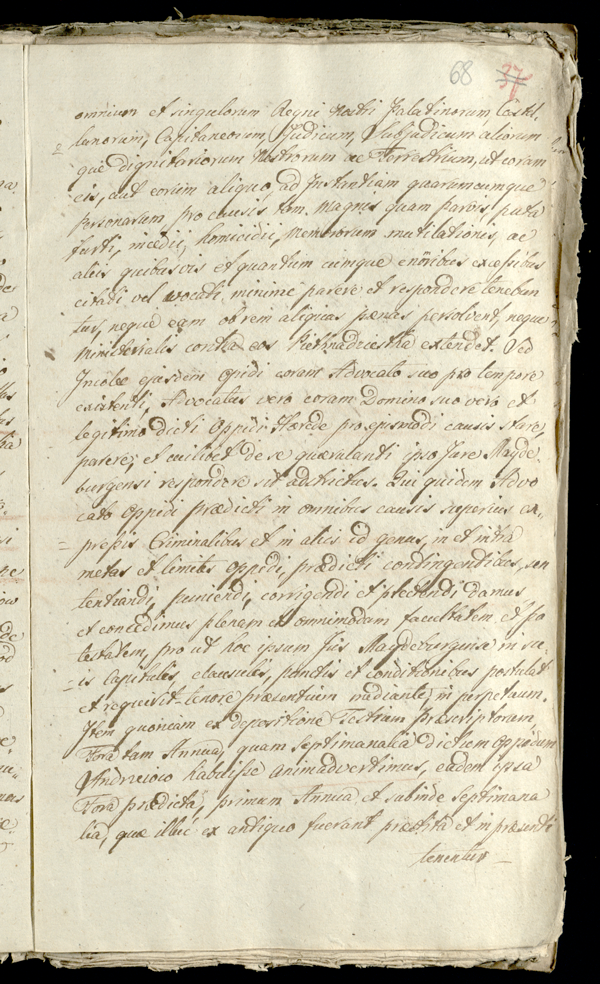 68 37
omnium et singulorum Regni Nostri Palatinorum, Castel-
lanorum, Capitaneorum, Judicum, Subjudicum aliorum
que dignitariorum Nostrorum ac Terrestrium, ut coram
eis, aut eorum aliquo, ad Instantiam quarumcumque
Personarum pro causis tam magnis quam parvis, puta
furti, incedii, homicidii, Membrorum mutilationis, ac
aliis quibusvis et quantum cumque enormibus excessibus
citati vel vocati, minime parere et respondere tenebun
tur, neque eam ob rem aliquas pœnas persolvent, neque
Ministerialis contra eos extendet. Sed
Incolæ ejusdem Opidi coram Advocato suo pro tempore
existenti, Advocatus vero coram Domino suo vero et
legitimo dicti Oppidi Hærede pro ejusmodi causis stare,
parere, et cuilibet de se quærulanti ipso Jure Magde-
burgensi respondere sit adstrictus. Qui quidem Advo
cato Oppidi prædicti in omnibus causis superius ex-
pressis Criminalibus et in aliis id genus, in et intra
metas et limites Oppidi, prædicti contingentibus, sen
tentiandi, puniendi, corrigendi et plectendi damus
et concedimus plenam et omnimodam facultatem et po
testatem, pro ut hoc ipsum Jus Magdeburgense in su-
is Capitulis, clausulis, punctis et conditionibus postulat
et requirit tenore præsentium mediante in perpetuum.
Item quoniam ex depositione Testium Præscriptorum,
Fora tam Annua, quam Septimanalia dictum Oppidum
Andrzeiow habuisse animadvertimus, eadem ipsa
Fora prædicta, primum Annua et subinde Septimana
lia, quæ illuc ex antiquo fuerant præstita et in præsenti
tenentur